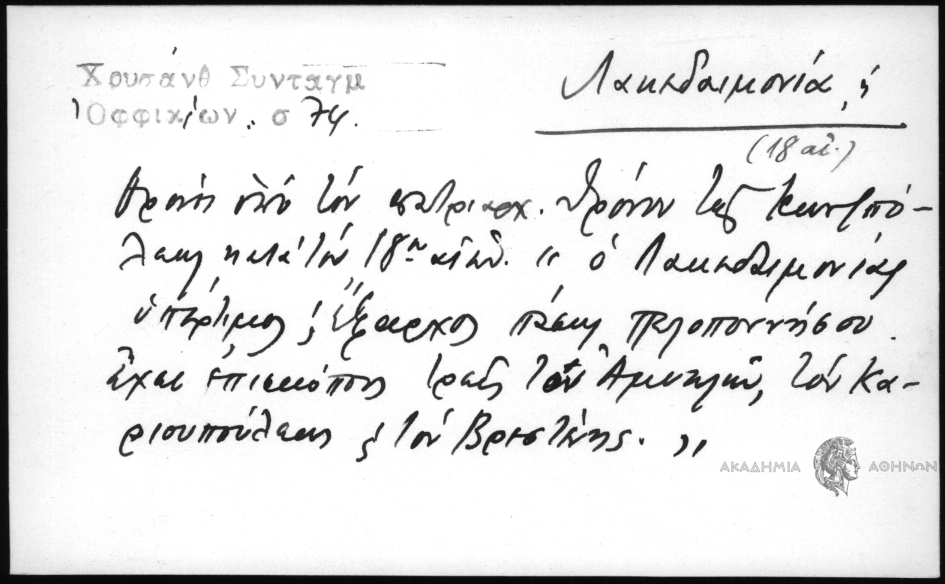 Χρυσάνθ Συνταγμ
Ὀφφικίων. σ 74.
Λακεδαιμονία, ἡ
(18 αἰ.)
ὑπὸ τὸν πατριαρχ. θρόνον τῆς Κωνσ)πό-
λεως κατὰ τὸν 18ον αἰῶν. "ὁ Λακεδαιμονίας
ὑπέρτιμος ϗ Ἔξαρχος πάσης Πελοποννήσου.
ἔχει ἐπισκόπους τρεῖς τὸν Ἀμυκλῶν, τὸν Κα-
ριουπόλεως ϗ τὸν Βρεστένης. "
ΑΚΑΔΗΜΙΑ ΑΘΗΝΩΝ